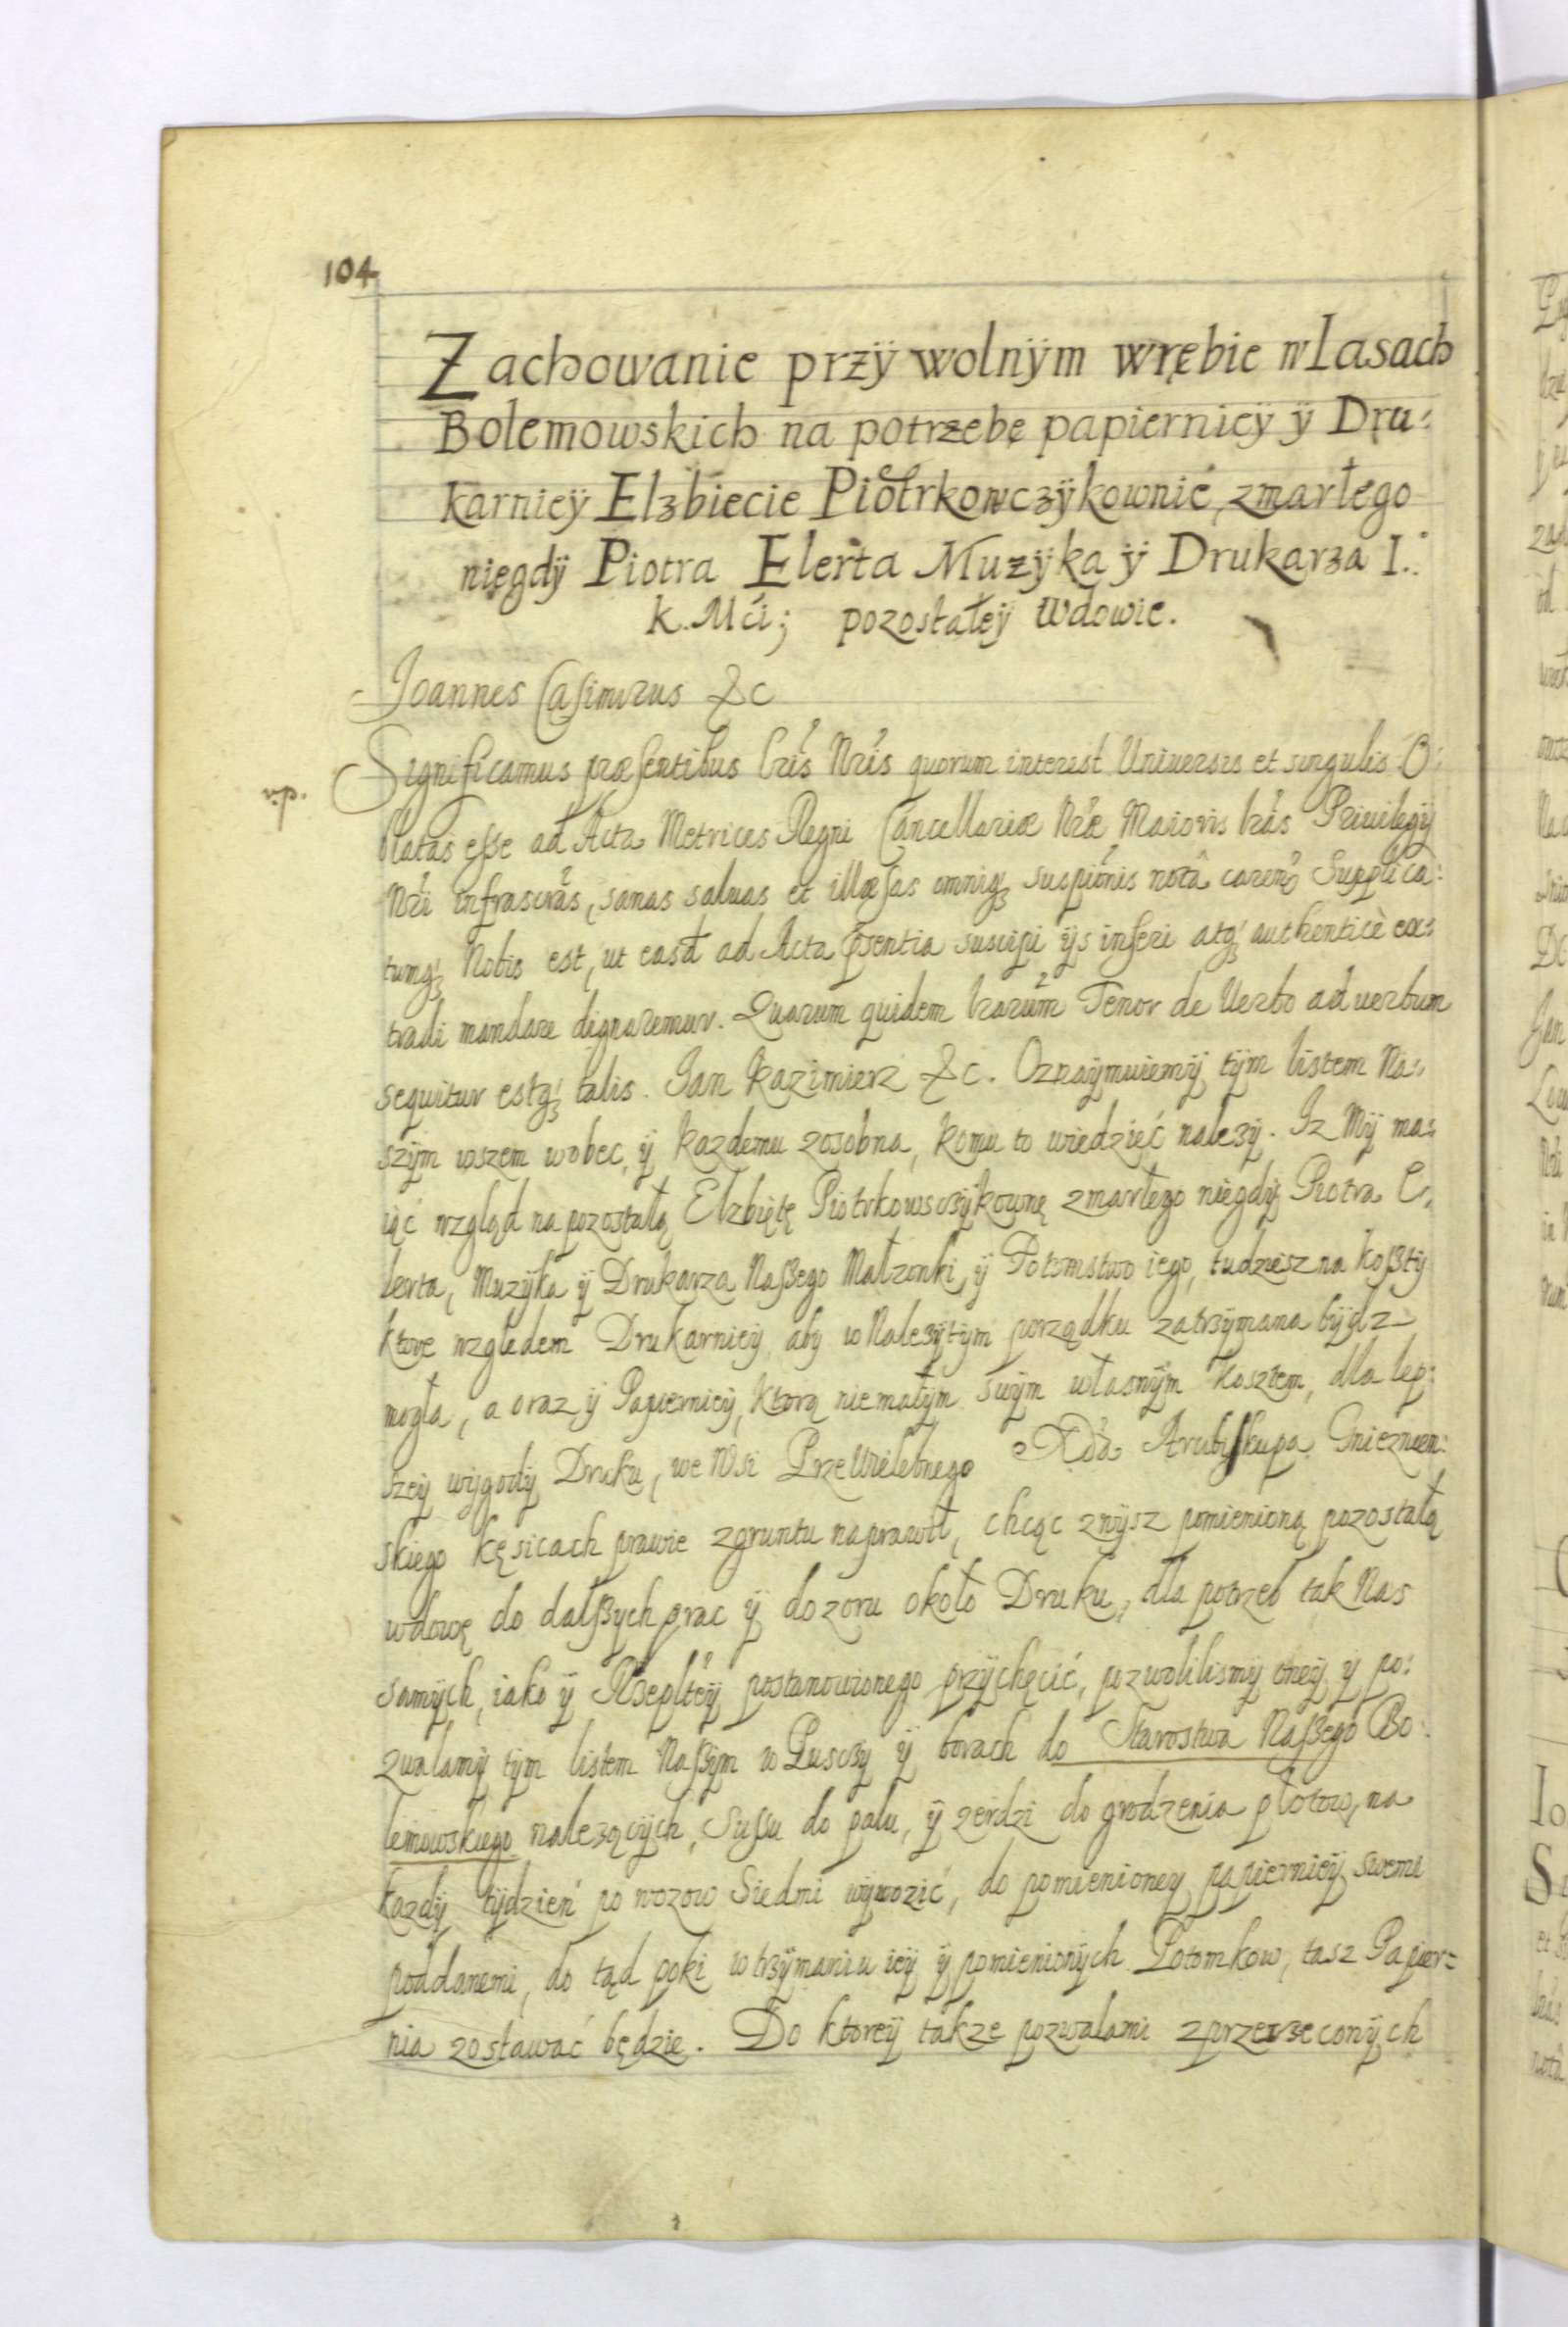 104
Zachowanie przÿ wolnÿm wrębie w Lasach
Bolemowskich na potrzebę papierniceÿ ÿ Dru:
karnieÿ Elzbiecie Piotrkowczÿkownie, zmarłego
niegdÿ Piotra Elerta Muzÿka ÿ Drukarza I.
K. Mći; pozostałeÿ Wdowie.
Joannes Casimirus &c
Significamus præsentibus lris Nris quorum interest Universis et singulis O:
blatas esse ad Acta Metrices Regni Cancellariæ Nræ Maioris lras Privilegÿ
Nri infrascras, sanas saluas et illæsas omniq suspionis notâ caren Supplica:
tumq Nobis est, ut easd ad Acta psentia suscipi ijs inseri atq authenticè ex:
tradi mandare dignaremur. Quarum quidem lrarum Tenor de Verbo ad verbum
sequitur estq talis. Jan Kazimierz &c. Oznaÿmuiemÿ tÿm listem Na:
szÿm wszem wobec, ÿ kazdemu zosobna, komu to wiedzieć nalezÿ. Iz Mÿ ma:
iąc wzgląd na pozostałą Elzbiętę Piotrkowsczÿkownę zmarłego niegdÿ Piotra E,
lerta, Muzÿka ÿ Drukarza Naszego Małzonki, ÿ Potomstwo iego, tudziesz na kosztÿ
ktore wzgledem Drukarnieÿ aby w Nalezÿtÿm porządku zatrzÿmana bÿdz
mogła, a oraz ÿ Papiernieÿ, ktorą niemałÿm swÿm własnÿm kosztem, dla lep:
szeÿ wÿgodÿ Druku, we Wsi Przewielebnego Xdza Arcubiskupa Gnieznien:
skiego Kęsicach prawie zgruntu naprawił, chcąc zwÿsz pomienioną pozostałą
wdowę do dalszych prac ÿ dozoru około Druku, dla potrzeb tak Nas
samÿch, iako ÿ Rzeplteÿ postanowionego przÿchęcić, pozwolilismÿ oneÿ, y po:
zwalamÿ tÿm listem Naszÿm w Pusczy ÿ borach do Starostwa Naszego Bo:
lemowskiego nalezącÿch, Suszu do palu, ÿ zerdzi do grodzenia płotow, na
kozdÿ tÿdzień po wozow Siedmi wÿwozić, do pomienioney papiernieÿ swemi
poddanemi, do tąd poki w trzÿmaniu ieÿ ÿ pomienionÿch Potomkow, tasz Papier=
nia zostawać będzie. Do ktoreÿ takze pozwalami zprzerzeconÿch